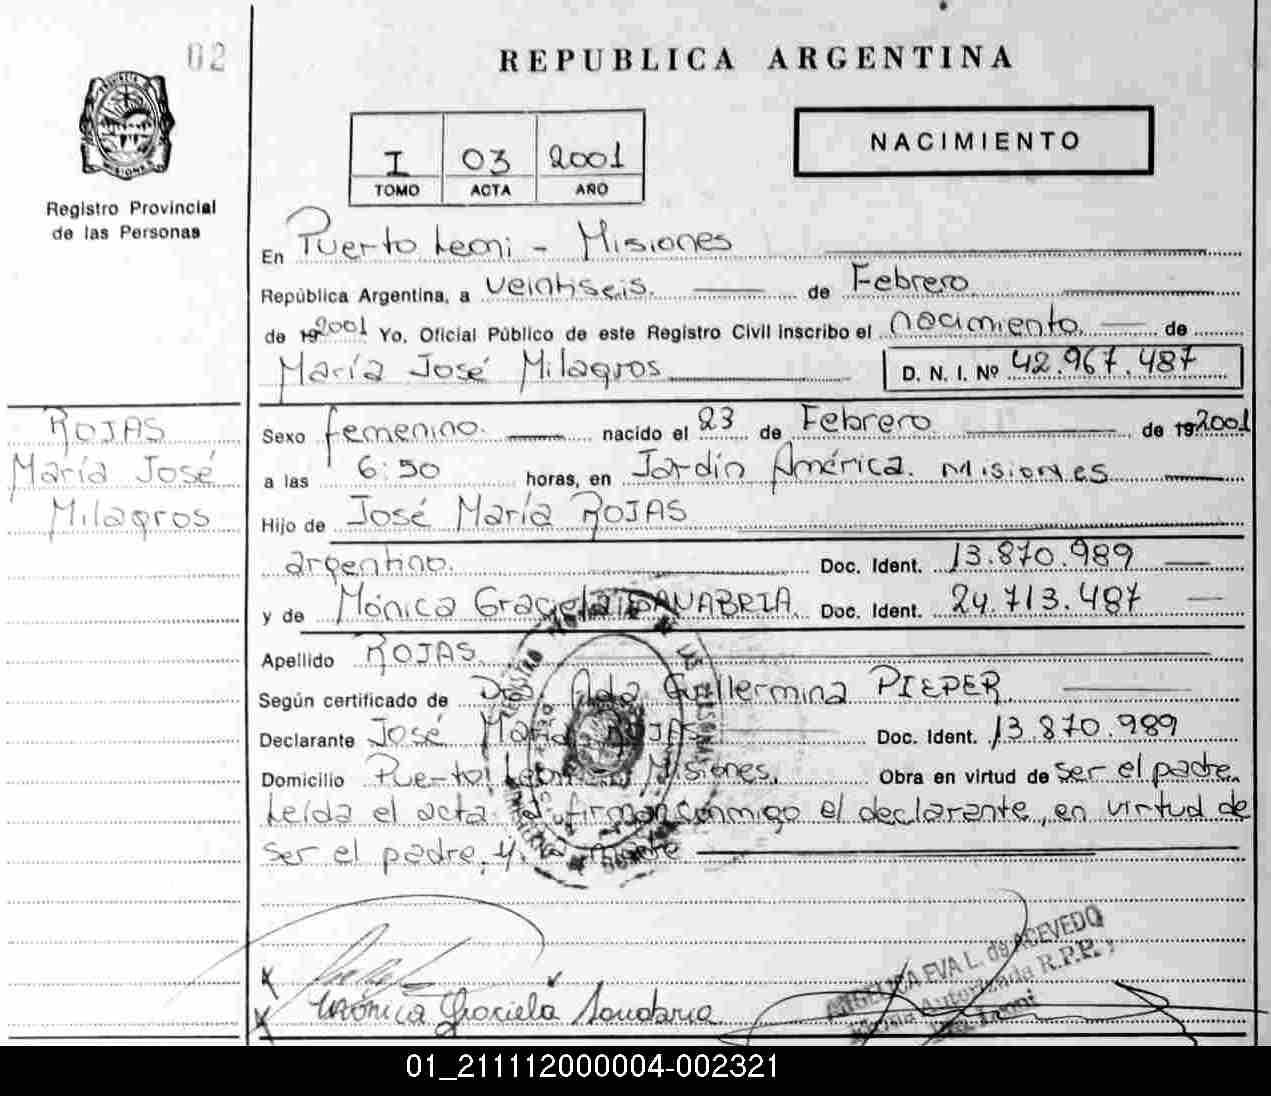 02
REPUBLICA ARGENTINA
I 03 2001
TOMO ACTA AÑO
NACIMIENTO
Registro Provincial
de las Personas
En Puerto Leoni - Misiones
República Argentina, a veintiseis. de Febrero
de 19 2001 Yo, Oficial Público de este Registro Civil inscribo el nacimiento de
María José Milagros D. N. I. Nº 42.967.487
ROJAS
María José
Milagros
Sexo femenino. nacido el 23 de Febrero de 19 2001
a las 6:50 horas, en Jardín América. Misiones
Hijo de José María ROJAS
argentino. Doc. Ident. 13.870.989
y de Mónica Graciela SANABRIA. Doc. Ident. 24.713.487
Apellido ROJAS.
Según certificado de Dra. Ada Guillermina PIEPER
Declarante José María ROJAS Doc. Ident. 13.870.989
Domicilio Puerto Leoni - Misiones. Obra en virtud de ser el padre.
Leída el acta. firman conmigo el declarante, en virtud de
ser el padre, y. la madre
REGISTRO PROVINCIAL DE LAS PERSONAS
ANGELICA EVA L. de ACEVEDO
Autorizada R.P.P.
Leoni
Mónica Graciela Sanabria
01_211112000004-002321